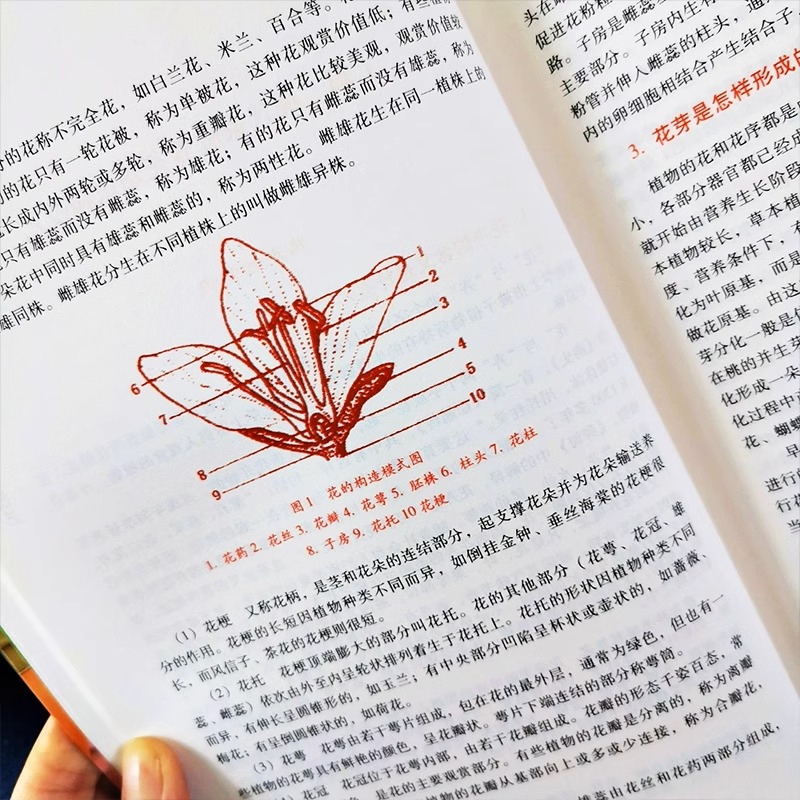 分的花称不完全花，如白兰花、米兰、百合等。
的花只有一轮花被，称为单被花，这种花观赏价值低；有些植
长成内外两轮或多轮，称为重瓣花，这种花比较美观，观赏价值较
只有雄蕊而没有雌蕊，称为雄花；有的花只有雌蕊而没有雄蕊，称为
朵花中同时具有雄蕊和雌蕊的，称为两性花。雌雄花生在同一植株上的
雄同株。雌雄花分生在不同植株上的叫做雌雄异株。
1
2
3
4
5
10
6
7
8
9
图1 花的构造模式图
1. 花药 2. 花丝 3. 花瓣 4. 花萼 5. 胚株 6. 柱头 7. 花柱
8. 子房 9. 花托 10 花梗
（1）花梗 又称花柄，是茎和花朵的连结部分，起支撑花朵并为花朵输送养
分的作用。花梗的长短因植物种类不同而异，如倒挂金钟、垂丝海棠的花梗很
长，而风信子、茶花的花梗则很短。
（2）花托 花梗顶端膨大的部分叫花托。花的其他部分（花萼、花冠、雄
蕊、雌蕊）依次由外至内呈轮状排列着生于花托上。花托的形状因植物种类不同
而异，有伸长呈圆锥形的，如玉兰；有中央部分凹陷呈杯状或壶状的，如蔷薇、
梅花；有呈倒圆锥状的，如荷花。
（3）花萼 花萼由若干萼片组成，包在花的最外层，通常为绿色，但也有一
些植物的花萼具有鲜艳的颜色，呈花瓣状。萼片下端连结的部分称萼筒。
花冠 花冠位于花萼内部，由若干花瓣组成。花瓣的形态千姿百态，常
是花的主要观赏部分。有些植物的花瓣是分离的，称为离瓣
植物的花瓣从基部向上或多或少连接，称为合瓣花，
雄蕊由花丝和花药两部分组成，
头在雌
促进花粉粒
路。子房是雌蕊
主要部分。子房内生有
粉管并伸入雌蕊的柱头，通
内的卵细胞相结合产生结合子，
3. 花芽是怎样形成的
植物的花和花序都是
小，各部分器官都已经
就开始由营养生长阶段
本植物较长，草本植
度、营养条件下，有
化为叶原基，而是
做花原基。由这
芽分化一般是
在桃的并生芽
化形成一朵
化过程中
花、蝴蝶
早
进行的
行花
当